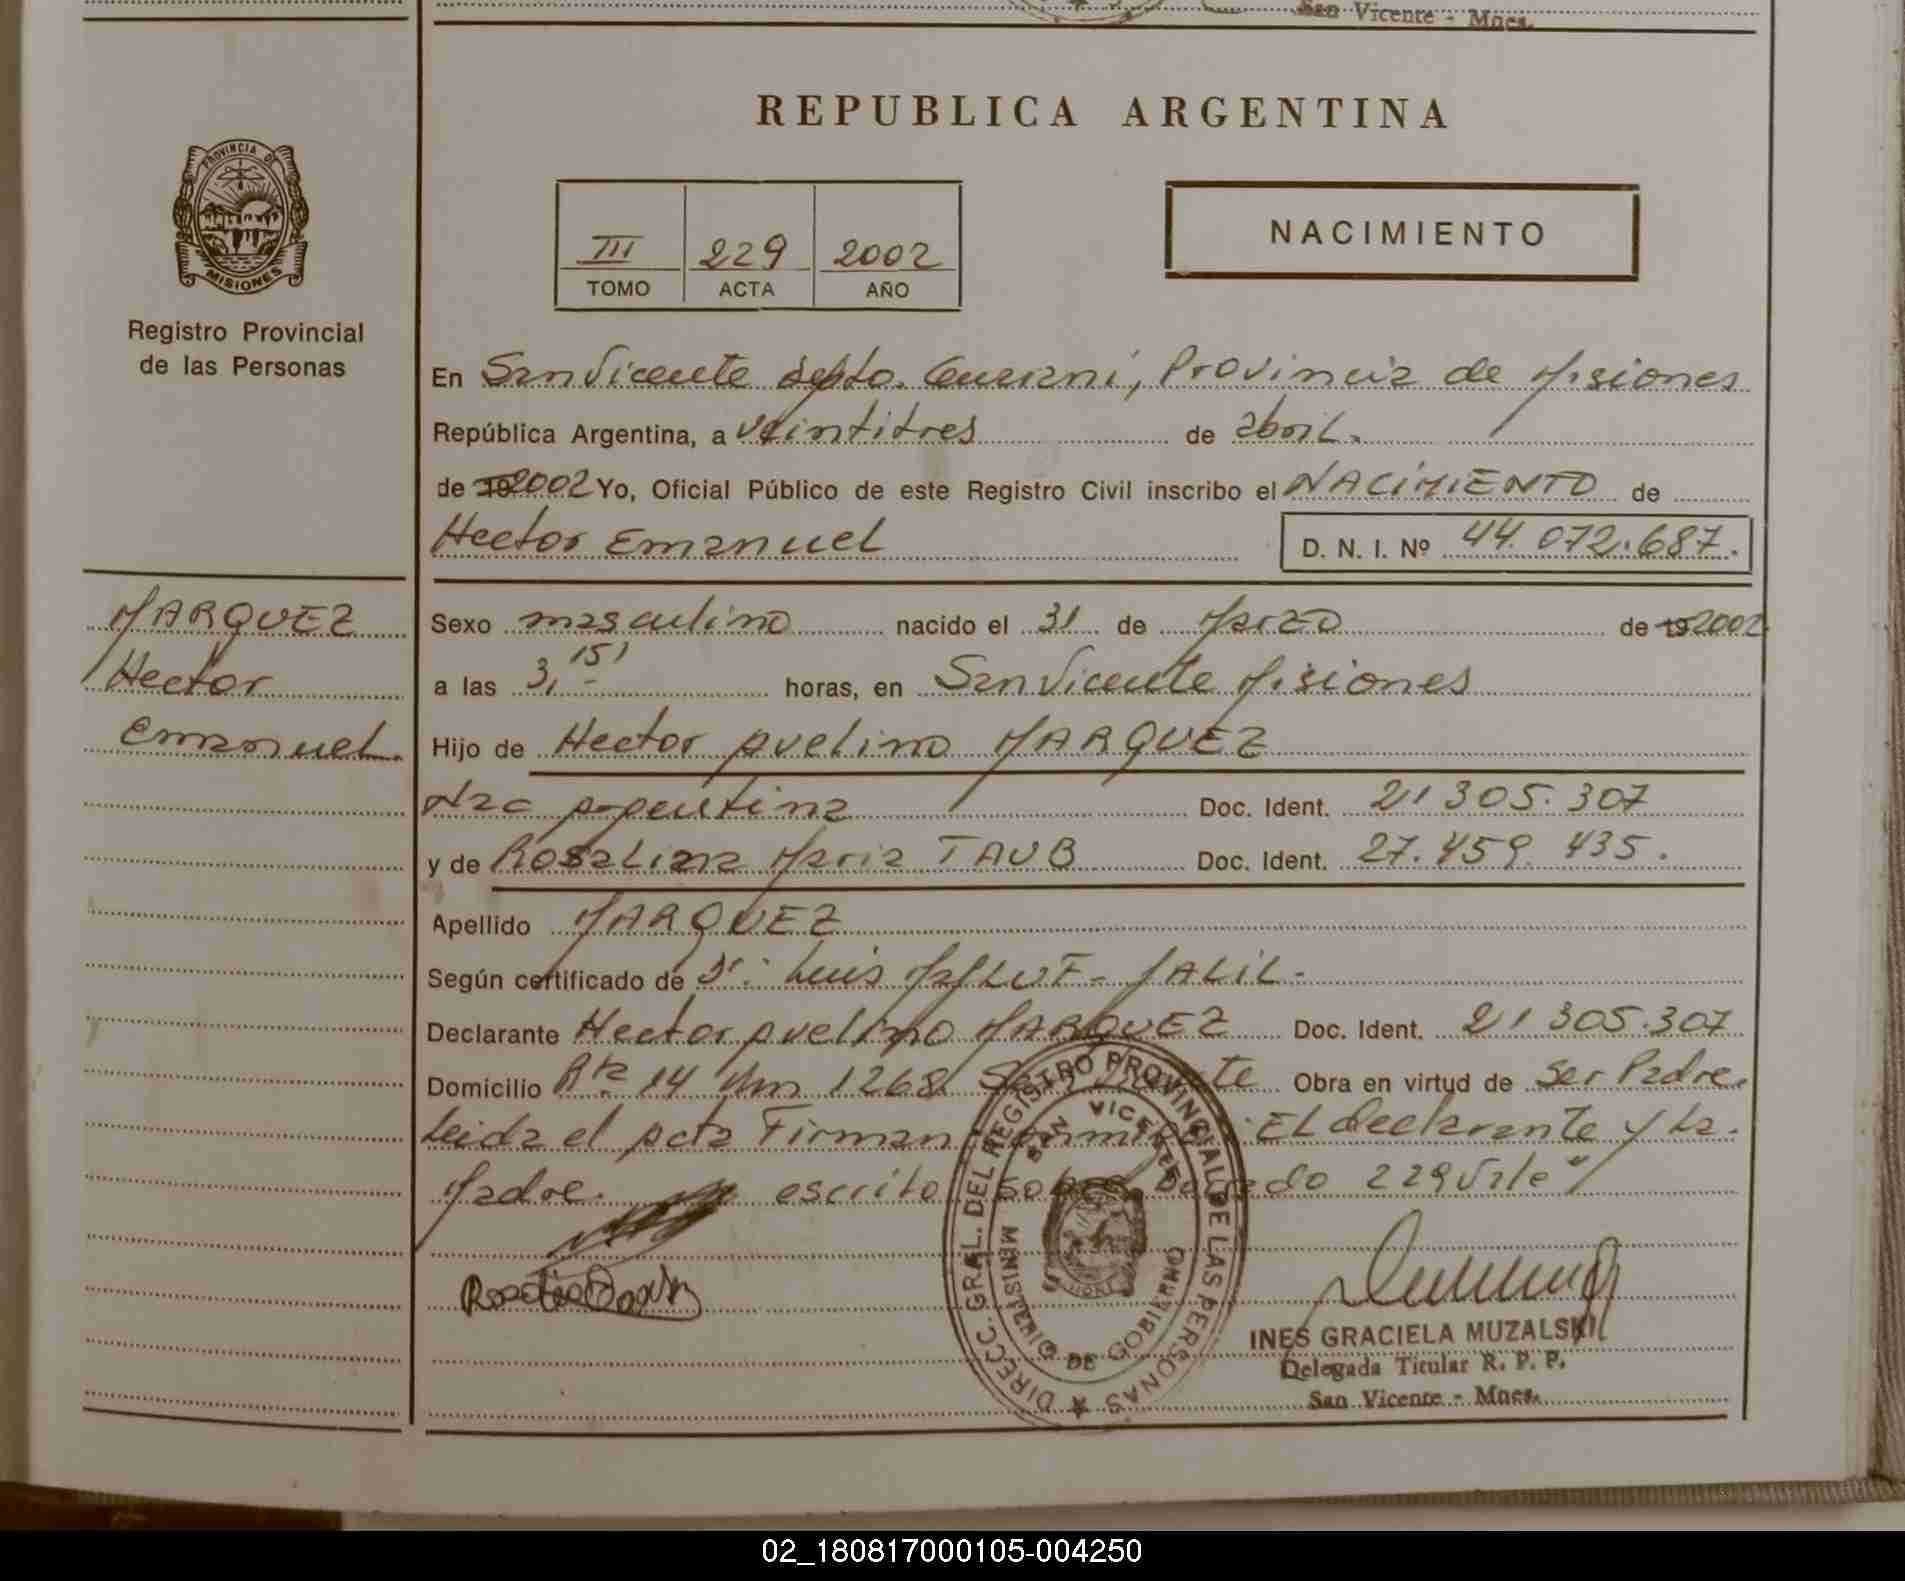 San Vicente - Mnes.
REPUBLICA ARGENTINA
PROVINCIA DE
MISIONES
Registro Provincial
de las Personas
III 229 2002
TOMO ACTA AÑO
NACIMIENTO
En San Vicente depto. Guarani, Provincia de Misiones
República Argentina, a veintitres de abril.
de 19 2002 Yo, Oficial Público de este Registro Civil inscribo el NACIMIENTO de
Hector Emanuel D. N. I. Nº 44.072.687.
MARQUEZ
Hector
Emanuel.
Sexo masculino nacido el 31 de Marzo de 19 2002
a las 3,15' horas, en San Vicente Misiones
Hijo de Hector Avelino MARQUEZ
Nac Argentina Doc. Ident. 21 305.307
y de Rosaliana Maria TAUB Doc. Ident. 27.459.435.
Apellido MARQUEZ
Según certificado de Dr: Luis MALUF - JALIL -
Declarante Hector Avelino MARQUEZ Doc. Ident. 21 305.307
Domicilio Rta 14 Km 1268 San Vicente Obra en virtud de Ser Padre.
Leida el acta Firman conmigo: EL declarante y La.
Madre. escrito sobre borrado 229 Vale"
DIRECC. GRAL. DEL REGISTRO PROVINCIAL DE LAS PERSONAS
SAN VICENTE
MINISTERIO DE GOBIERNO
INES GRACIELA MUZALSKI
Delegada Titular R. P. P.
San Vicente - Mnes.
02_180817000105-004250